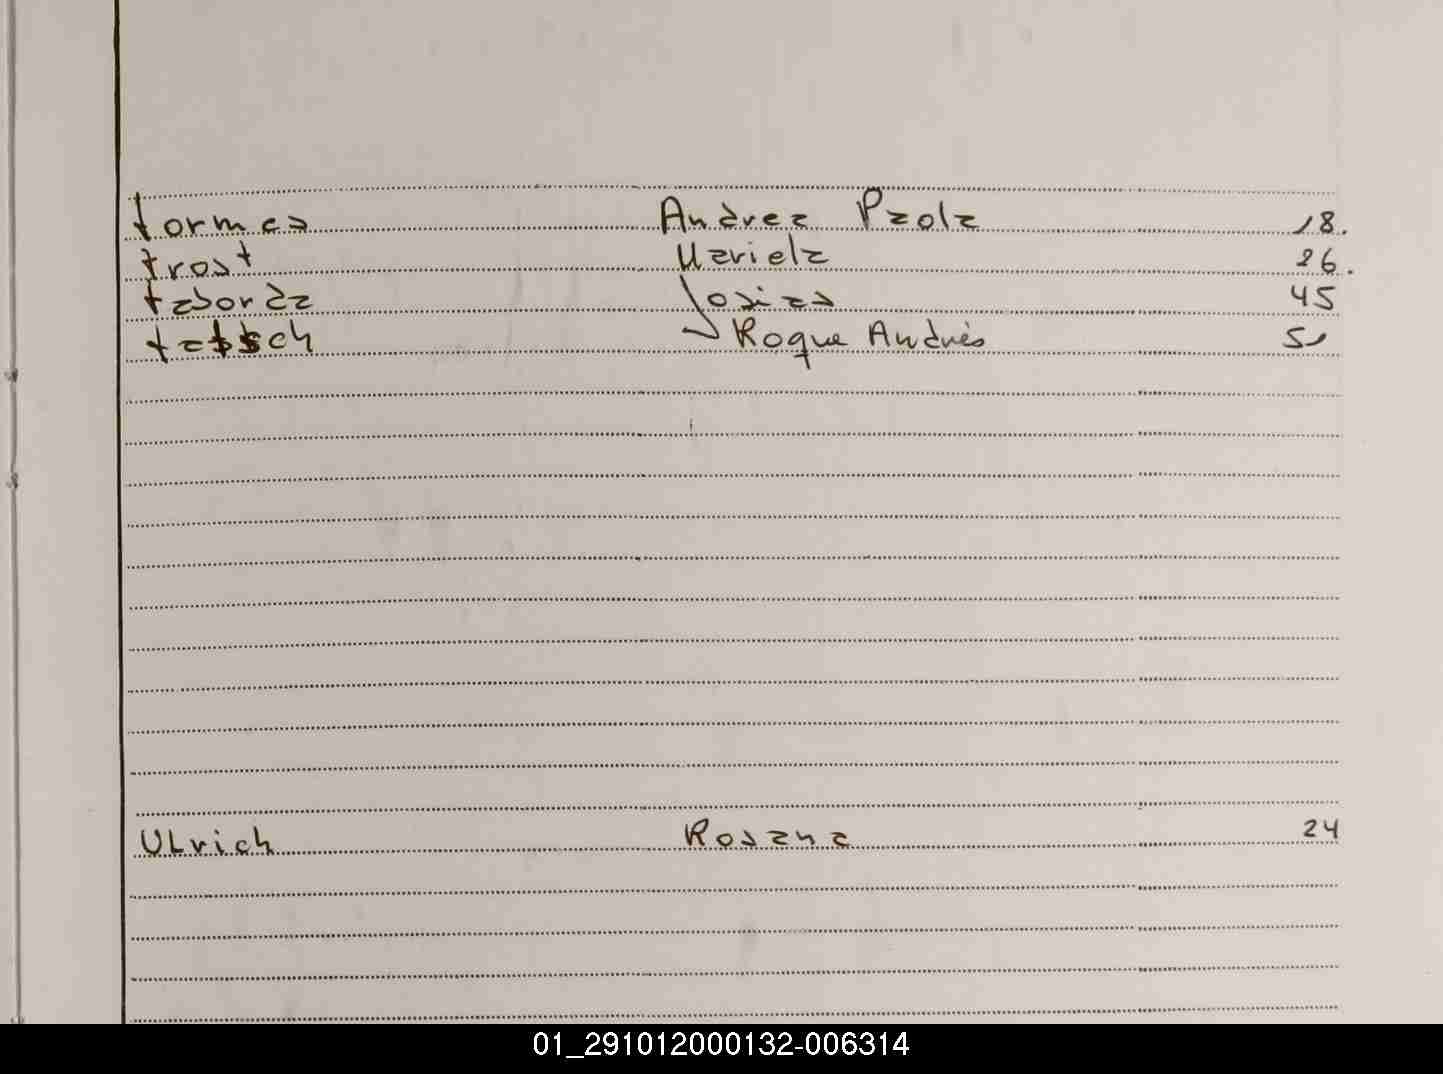 tormes Andrea Paola 18.
trost Mariela 26.
taborda Josias 45
tatsch Roque Andrés 51
ULrich Rosana 24
01_291012000132-006314